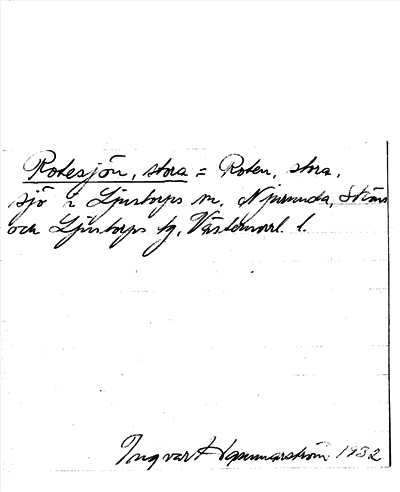 Rotesjön, stora = Roten, stora,
sjö i Ljustorps sn, Njurunda, Sköns
och Ljustorps tg, Västernorrl. l.
Ingvar Hammarström 1932